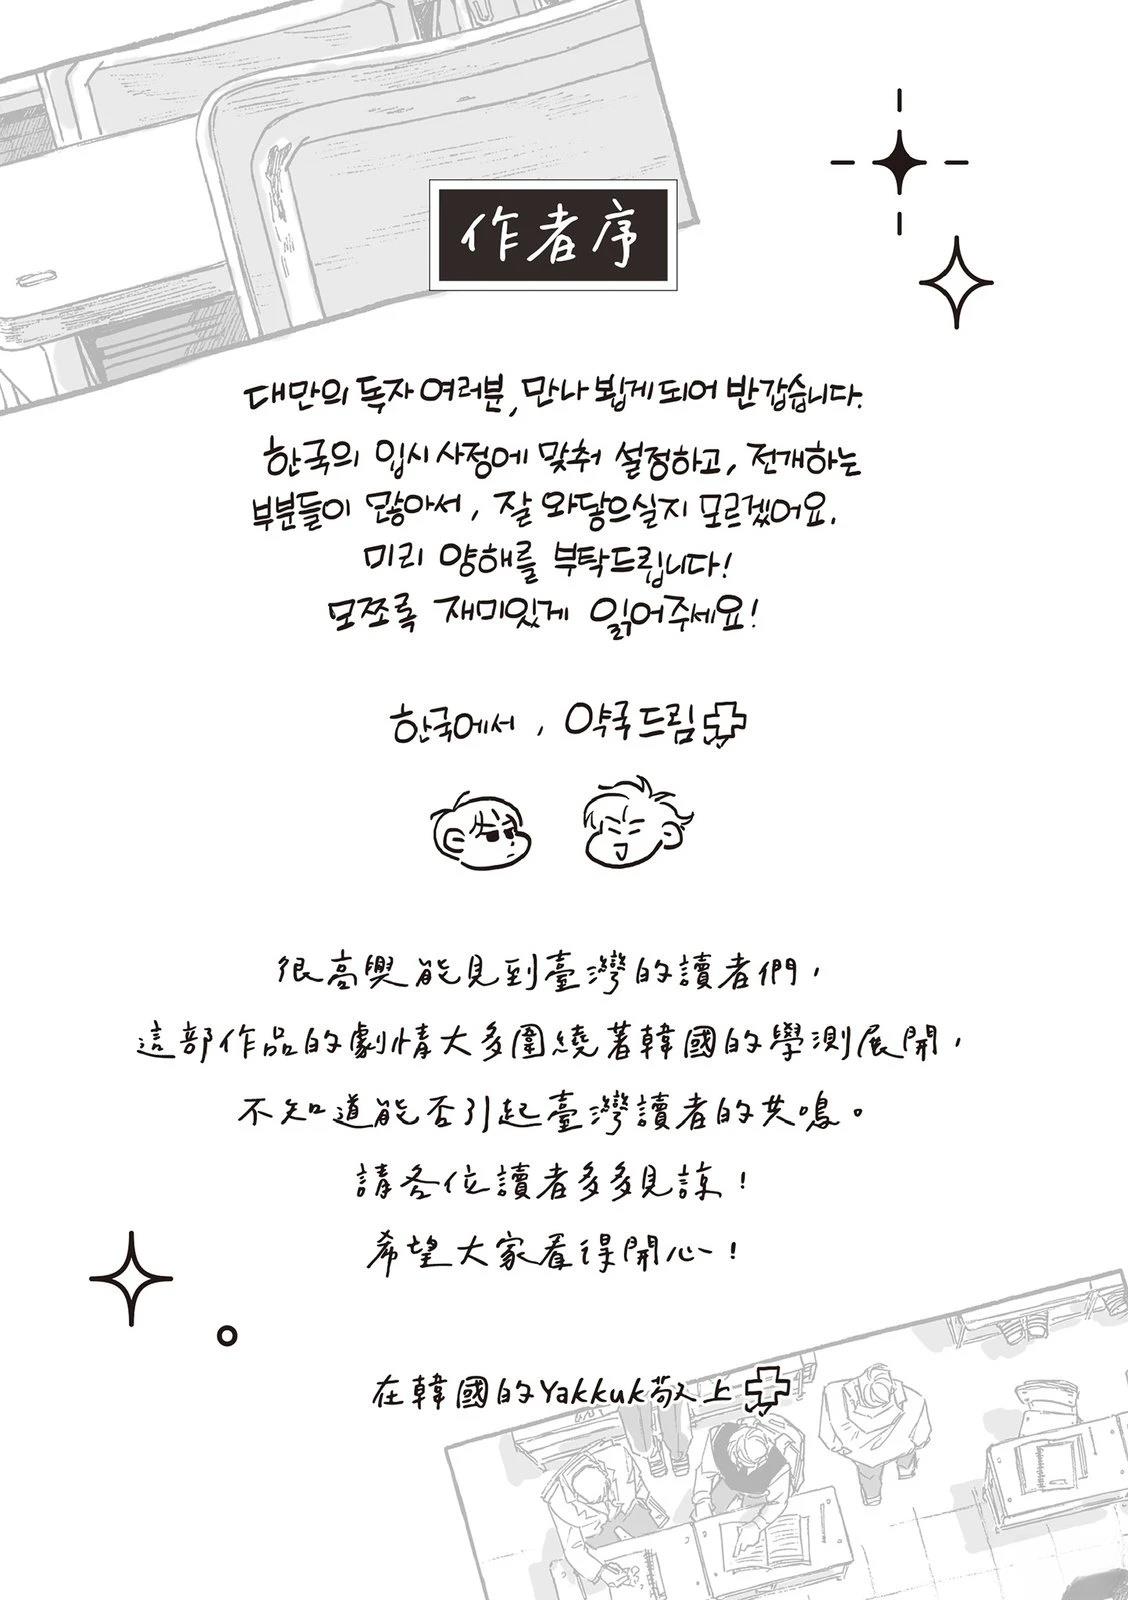 作者序
대만의 독자 여러분, 만나 뵙게 되어 반갑습니다.
한국의 입시 사정에 맞춰 설정하고, 전개하는
부분들이 많아서, 잘 와닿으실지 모르겠어요.
미리 양해를 부탁드립니다!
모쪼록 재미있게 읽어주세요!
한국에서, 약국 드림
很高興能見到臺灣的讀者們，
這部作品的劇情大多圍繞著韓國的學測展開，
不知道能否引起臺灣讀者的共鳴。
請各位讀者多多見諒！
希望大家看得開心！
在韓國的Yakkuk敬上